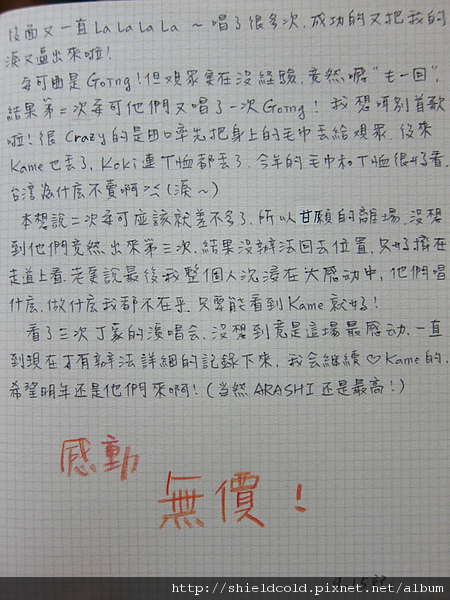 後面又一直LaLaLaLa～唱了很多次,成功的又把我的
淚又逼出來啦!
安可曲是GoIng!但觀眾實在沒經驗,竟然喊"も一回",
結果第二次安可他們又唱了一次GoIng!我想聽別首歌
啦!很Crazy的是田口率先把身上的毛巾丟給觀眾,後來
Kame也丟了,Koki連T恤都丟了,今年的毛巾和T恤很好看,
台灣為什麼不賣啊><(淚~)
本想說二次安可應該就差不多了,所以甘願的離場,沒想
到他們竟然出來第三次,結果沒辦法回去位置,只好擠在
走道上看,老實說最後我整個人沉浸在大感動中,他們唱
什麼,做什麼我都不在乎,只要能看到Kame就好!
看了三次丁家的演唱會,沒想到竟是這場最感動,一直
到現在才有辦法詳細的記錄下來,我會繼續♡Kame的,
希望明年還是他們來啊!(當然ARASHI還是最高!)
感動
無價!
http://shieldcold.pixnet.net/album